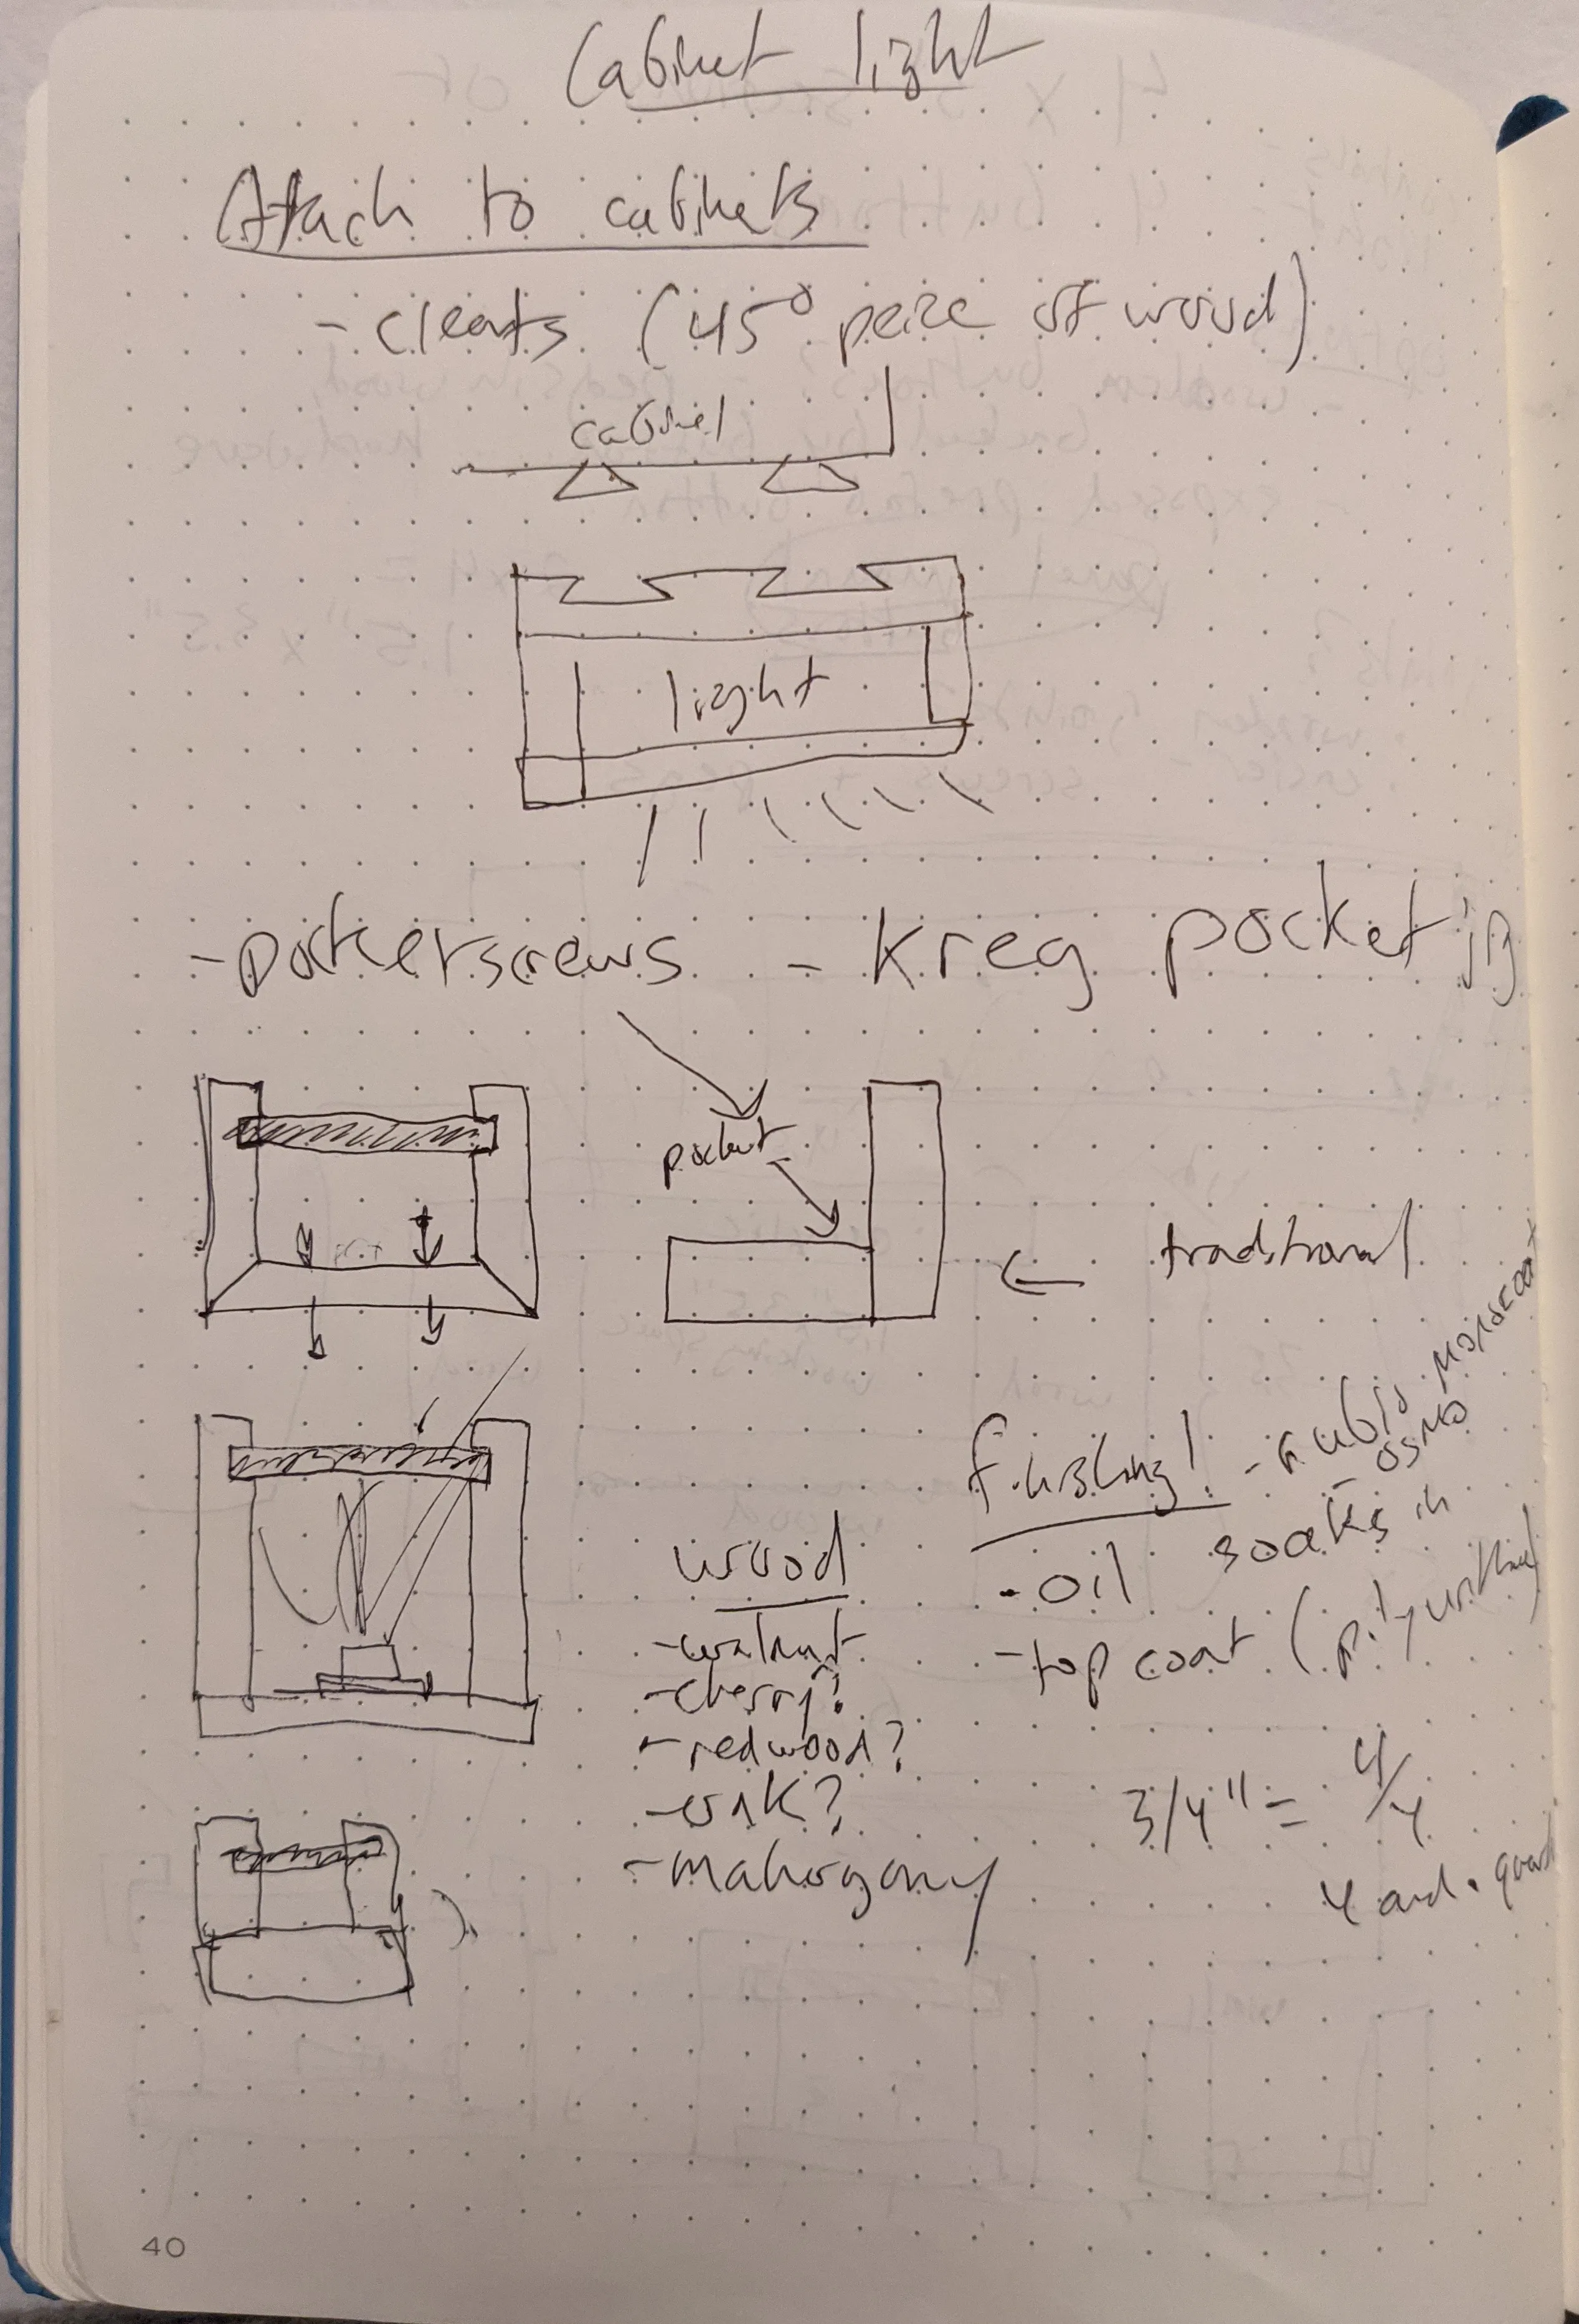 Cabinet light
Attach to cabinets
- cleats (45° peice of wood)
cabinet
light
- pocket screws - Kreg pocket jig
pocket
traditional
finishing! - rubio monocoat
- osmo
- oil soaks in
- top coat (
wood
- walnut
- cherry?
- redwood?
- oak?
- mahogony
3/4" = 4/4
40